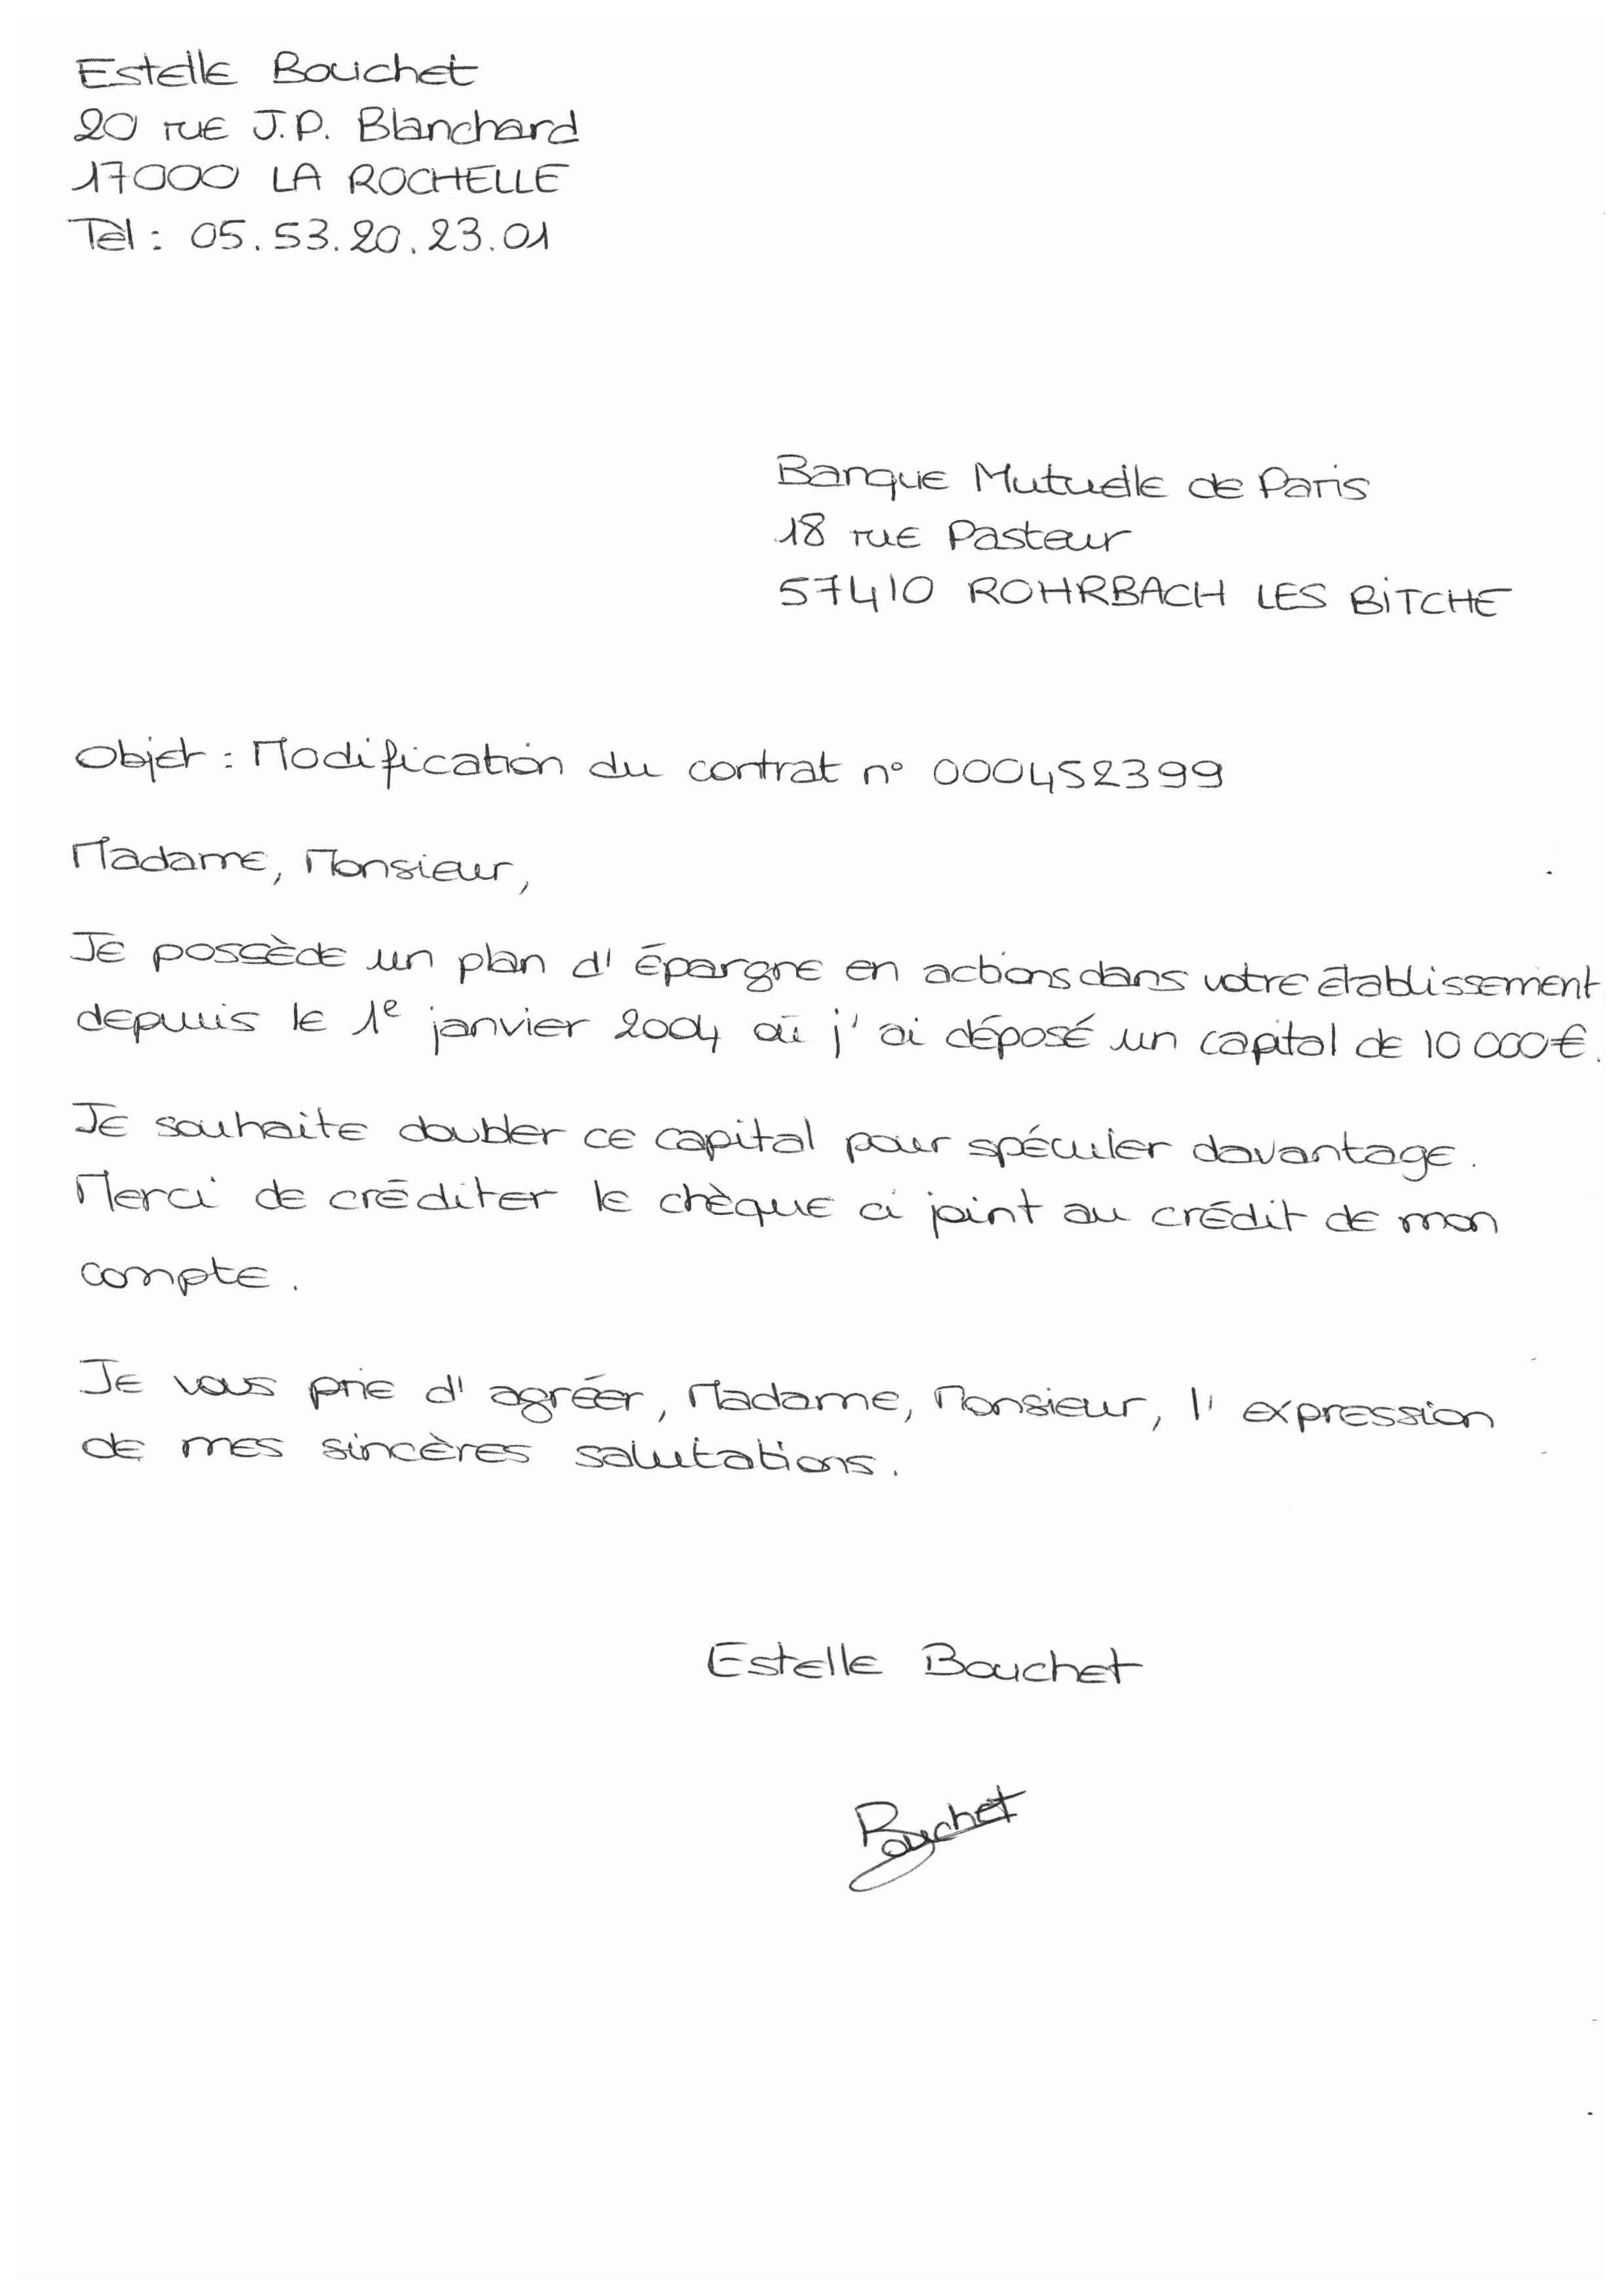 Estelle Bouchet
20 rue J.P. Blanchard
17000 LA ROCHELLE
Tèl : 05.53.20.23.01
Banque Mutuelle de Paris
18 rue Pasteur
57410 ROHRBACH LES BITCHE
Objet : Modification du contrat n° 000452399
Madame, Monsieur,
Je possède un plan d'épargne en actions dans votre établissement
depuis le 1e janvier 2004 où j'ai déposé un capital de 10 000€.
Je souhaite doubler ce capital pour spéculer davantage.
Merci de créditer le chèque ci joint au crédit de mon
compte.
Je vous prie d'agréer, Madame, Monsieur, l'expression
de mes sincères salutations.
Estelle Bouchet
Bouchet